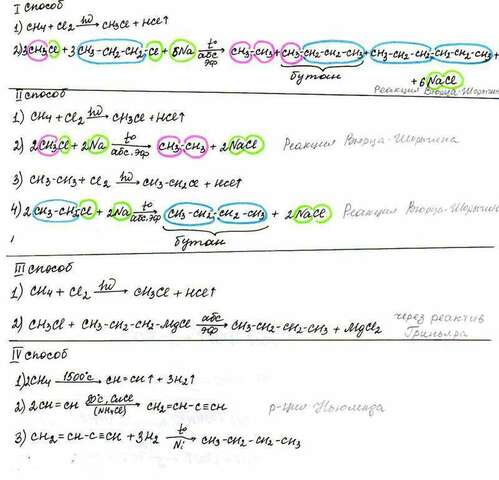 I способ
1) CH4 + Cl2 hν→ CH3Cl + HCl↑
2) 3CH3Cl + 3 CH3-CH2-CH2-Cl + 6Na t°→ абс.эф CH3-CH3 + CH3-CH2-CH2-CH3 + CH3-CH2-CH2-CH2-CH2-CH3 +
бутан + 6NaCl
Реакция Вюрца-Шорыгина
II способ
1) CH4 + Cl2 hν→ CH3Cl + HCl↑
2) 2CH3Cl + 2Na t°→ абс.эф CH3-CH3 + 2NaCl Реакция Вюрца-Шорыгина
3) CH3-CH3 + Cl2 hν→ CH3-CH2Cl + HCl↑
4) 2 CH3-CH2Cl + 2Na t°→ абс.эф CH3-CH2-CH2-CH3 + 2NaCl Реакция Вюрца-Шорыгина
бутан
III способ
1) CH4 + Cl2 hν→ CH3Cl + HCl↑
2) CH3Cl + CH3-CH2-CH2-MgCl абс→ эф CH3-CH2-CH2-CH3 + MgCl2 через реактив
Гриньяра
IV способ
1) 2CH4 1500°C→ CH≡CH↑ + 3H2↑
2) 2CH≡CH 80°C, CuCl→ (NH4Cl) CH2=CH-C≡CH р-ция Ньюленда
3) CH2=CH-C≡CH + 3H2 t°→ Ni CH3-CH2-CH2-CH3